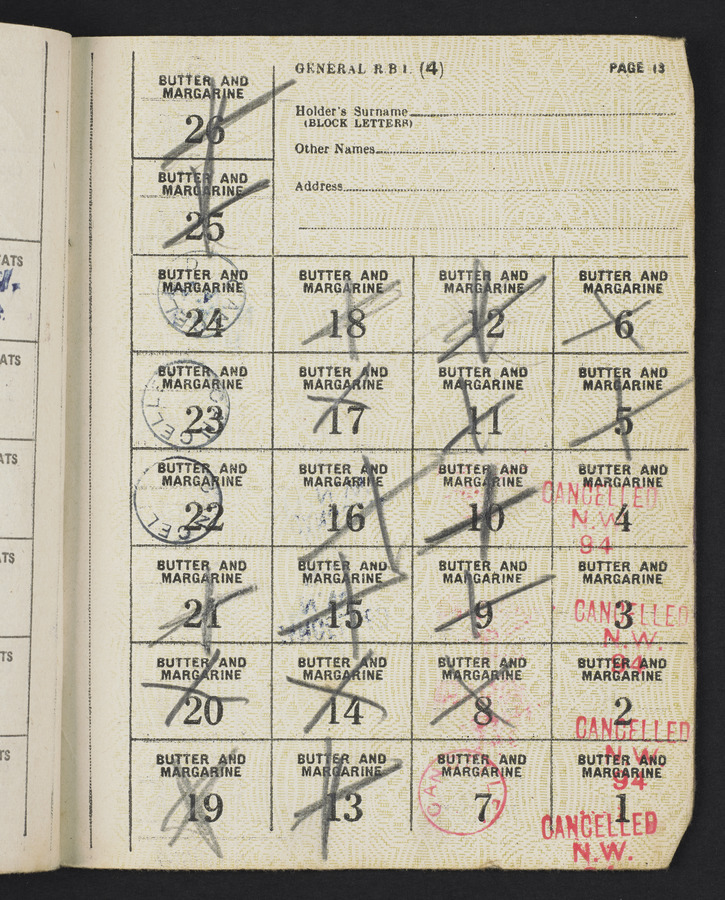 GENERAL R B 1. (4)
PAGE 13
Holder's Surname
(BLOCK LETTERS)
Other Names
Address
BUTTER AND
MARGARINE
26
BUTTER AND
MARGARINE
25
BUTTER AND
MARGARINE
24
BUTTER AND
MARGARINE
18
BUTTER AND
MARGARINE
12
BUTTER AND
MARGARINE
6
BUTTER AND
MARGARINE
23
BUTTER AND
MARGARINE
17
BUTTER AND
MARGARINE
11
BUTTER AND
MARGARINE
5
BUTTER AND
MARGARINE
22
BUTTER AND
MARGARINE
16
BUTTER AND
MARGARINE
10
BUTTER AND
MARGARINE
4
CANCELLED
N.W.
94
BUTTER AND
MARGARINE
21
BUTTER AND
MARGARINE
15
BUTTER AND
MARGARINE
9
BUTTER AND
MARGARINE
3
CANCELLED
N.W.
94
BUTTER AND
MARGARINE
20
BUTTER AND
MARGARINE
14
BUTTER AND
MARGARINE
8
BUTTER AND
MARGARINE
2
CANCELLED
N.W.
94
BUTTER AND
MARGARINE
19
BUTTER AND
MARGARINE
13
BUTTER AND
MARGARINE
7
BUTTER AND
MARGARINE
1
CANCELLED
N.W.